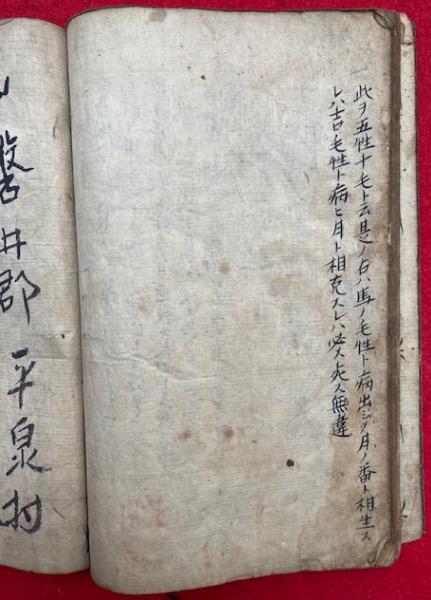 此ヲ五性十毛ト云是ノ右ハ馬ノ毛性ト病出シノ月ノ番ト相生ス
レハ吉毛性ト病ヒ月ト相克スレハ必ス死ス無違
磐井郡平泉村